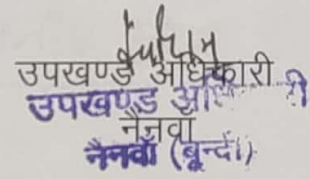 उपखण्ड अधिकारी
उपखण्ड अधि री
नैनवाँ
नैनवाँ (बून्दी)